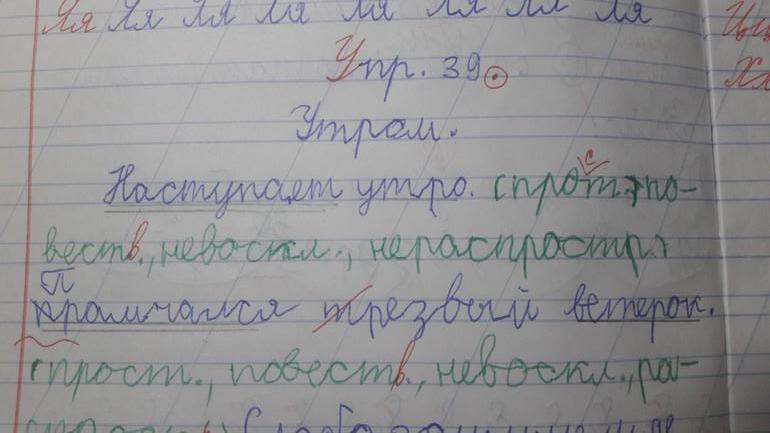 Яя Яя Яя Яя Яя Яя Яя Яя
Упр. 39.
Утром.
Наступает утро. (прост., по-
веств., невоскл., нераспростр.)
Промчался трезвый ветерок.
(прост., повеств., невоскл., ра-